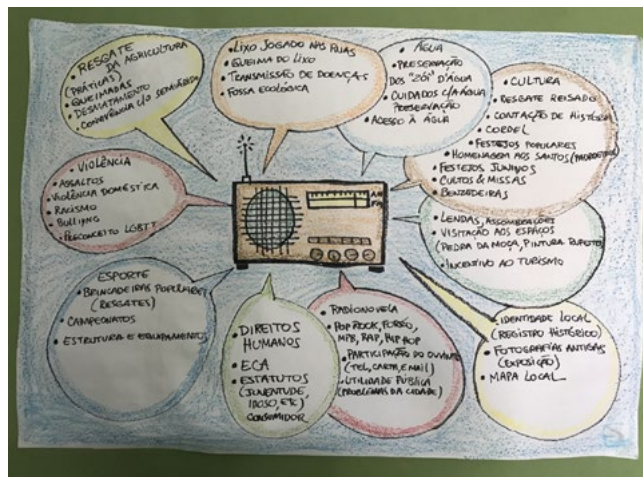 • RESGATE
DA AGRICULTURA
(PRÁTICAS)
• QUEIMADAS
• DESMATAMENTO
• CONVIVÊNCIA C/O SEMIÁRIDO
• LIXO JOGADO NAS RUAS
• QUEIMA DO LIXO
• TRANSMISSÃO DE DOENÇAS
• FOSSA ECOLÓGICA
• ÁGUA
• PRESERVAÇÃO
DOS "ZÓI" D'ÁGUA
• CUIDADOS C/A ÁGUA
PRESERVAÇÃO
• ACESSO À ÁGUA
• CULTURA
• RESGATE REISADO
• CONTAÇÃO DE HISTÓRIA
• CORDEL
• FESTEJOS POPULARES
• HOMENAGEM AOS SANTOS (PADROEIROS)
• FESTEJOS JUNINOS
• CULTOS & MISSAS
• BENZEDEIRAS
• VIOLÊNCIA
• ASSALTOS
• VIOLÊNCIA DOMÉSTICA
• RACISMO
• BULLYING
• PRECONCEITO LGBTT
AM
FM
• LENDAS, ASSOMBRAÇÕES
• VISITAÇÃO AOS ESPAÇOS
(PEDRA DA MOÇA, PINTURA RUPESTRE)
• INCENTIVO AO TURISMO
ESPORTE
• BRINCADEIRAS POPULARES
(RESGATES)
• CAMPEONATOS
• ESTRUTURA E EQUIPAMENTOS
• DIREITOS
HUMANOS
• ECA
• ESTATUTOS
(JUVENTUDE,
IDOSO, ETC)
CONSUMIDOR
• RADIONOVELA
• POP ROCK, FORRÓ,
MPB, RAP, HIP HOP
• PARTICIPAÇÃO DO OUVINTE
(TEL, CARTA, E MAIL)
• UTILIDADE PÚBLICA
(PROBLEMAS DA CIDADE)
• IDENTIDADE LOCAL
(REGISTRO HISTÓRICO)
• FOTOGRAFIAS ANTIGAS
(EXPOSIÇÃO)
• MAPA LOCAL